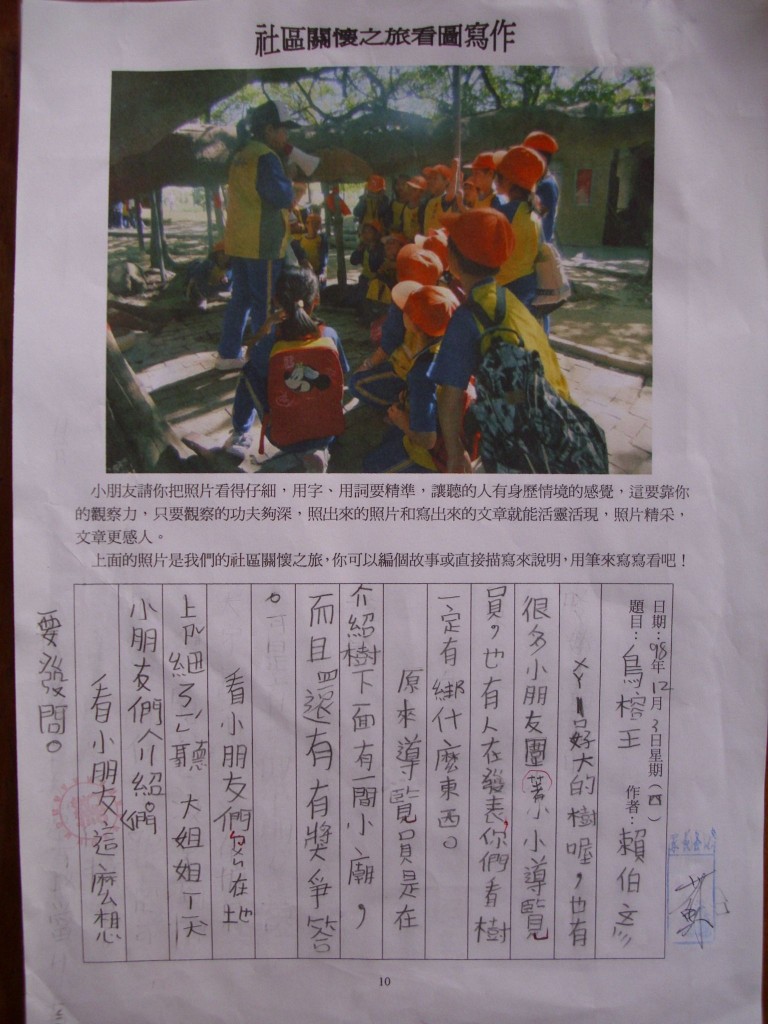 社區關懷之旅看圖寫作
小朋友請你把照片看得仔細，用字、用詞要精準，讓聽的人有身歷情境的感覺，這要靠你
的觀察力，只要觀察的功夫夠深，照出來的照片和寫出來的文章就能活靈活現，照片精采，
文章更感人。
上面的照片是我們的社區關懷之旅，你可以編個故事或直接描寫來說明，用筆來寫寫看吧！
日期：98年12月3日星期（四）
題目：鳥榕王 作者：賴伯
好大的樹喔，也有
很多小朋友圍著小小導覽
員，也有人在發表，你們看樹
一定有綁什麼東西。
原來導覽員是在
介紹樹下面有一間小廟，
而且還有有獎爭答
。
看小朋友們在地
上ㄗㄞ細ㄉㄜ聽大姐姐ㄍㄟ
小朋友們介紹。
看小朋友這麼想
要發問。
10